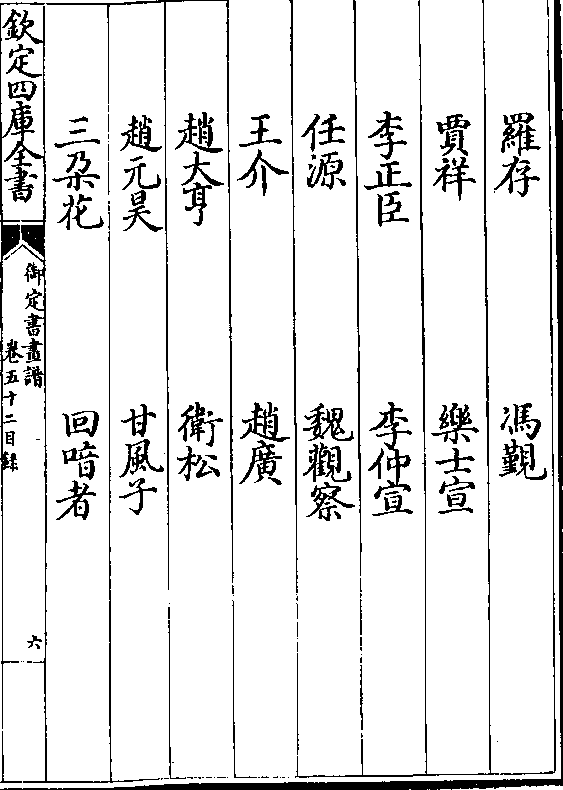 羅存 馮覲
賈祥 樂士宣
李正臣 李仲宣
任源 魏觀察
王介 趙廣
趙大亨 衛松
趙元昊 甘風子
三朶花 回喑者
欽定四庫全書
御定書畫譜
卷五十二目録
六